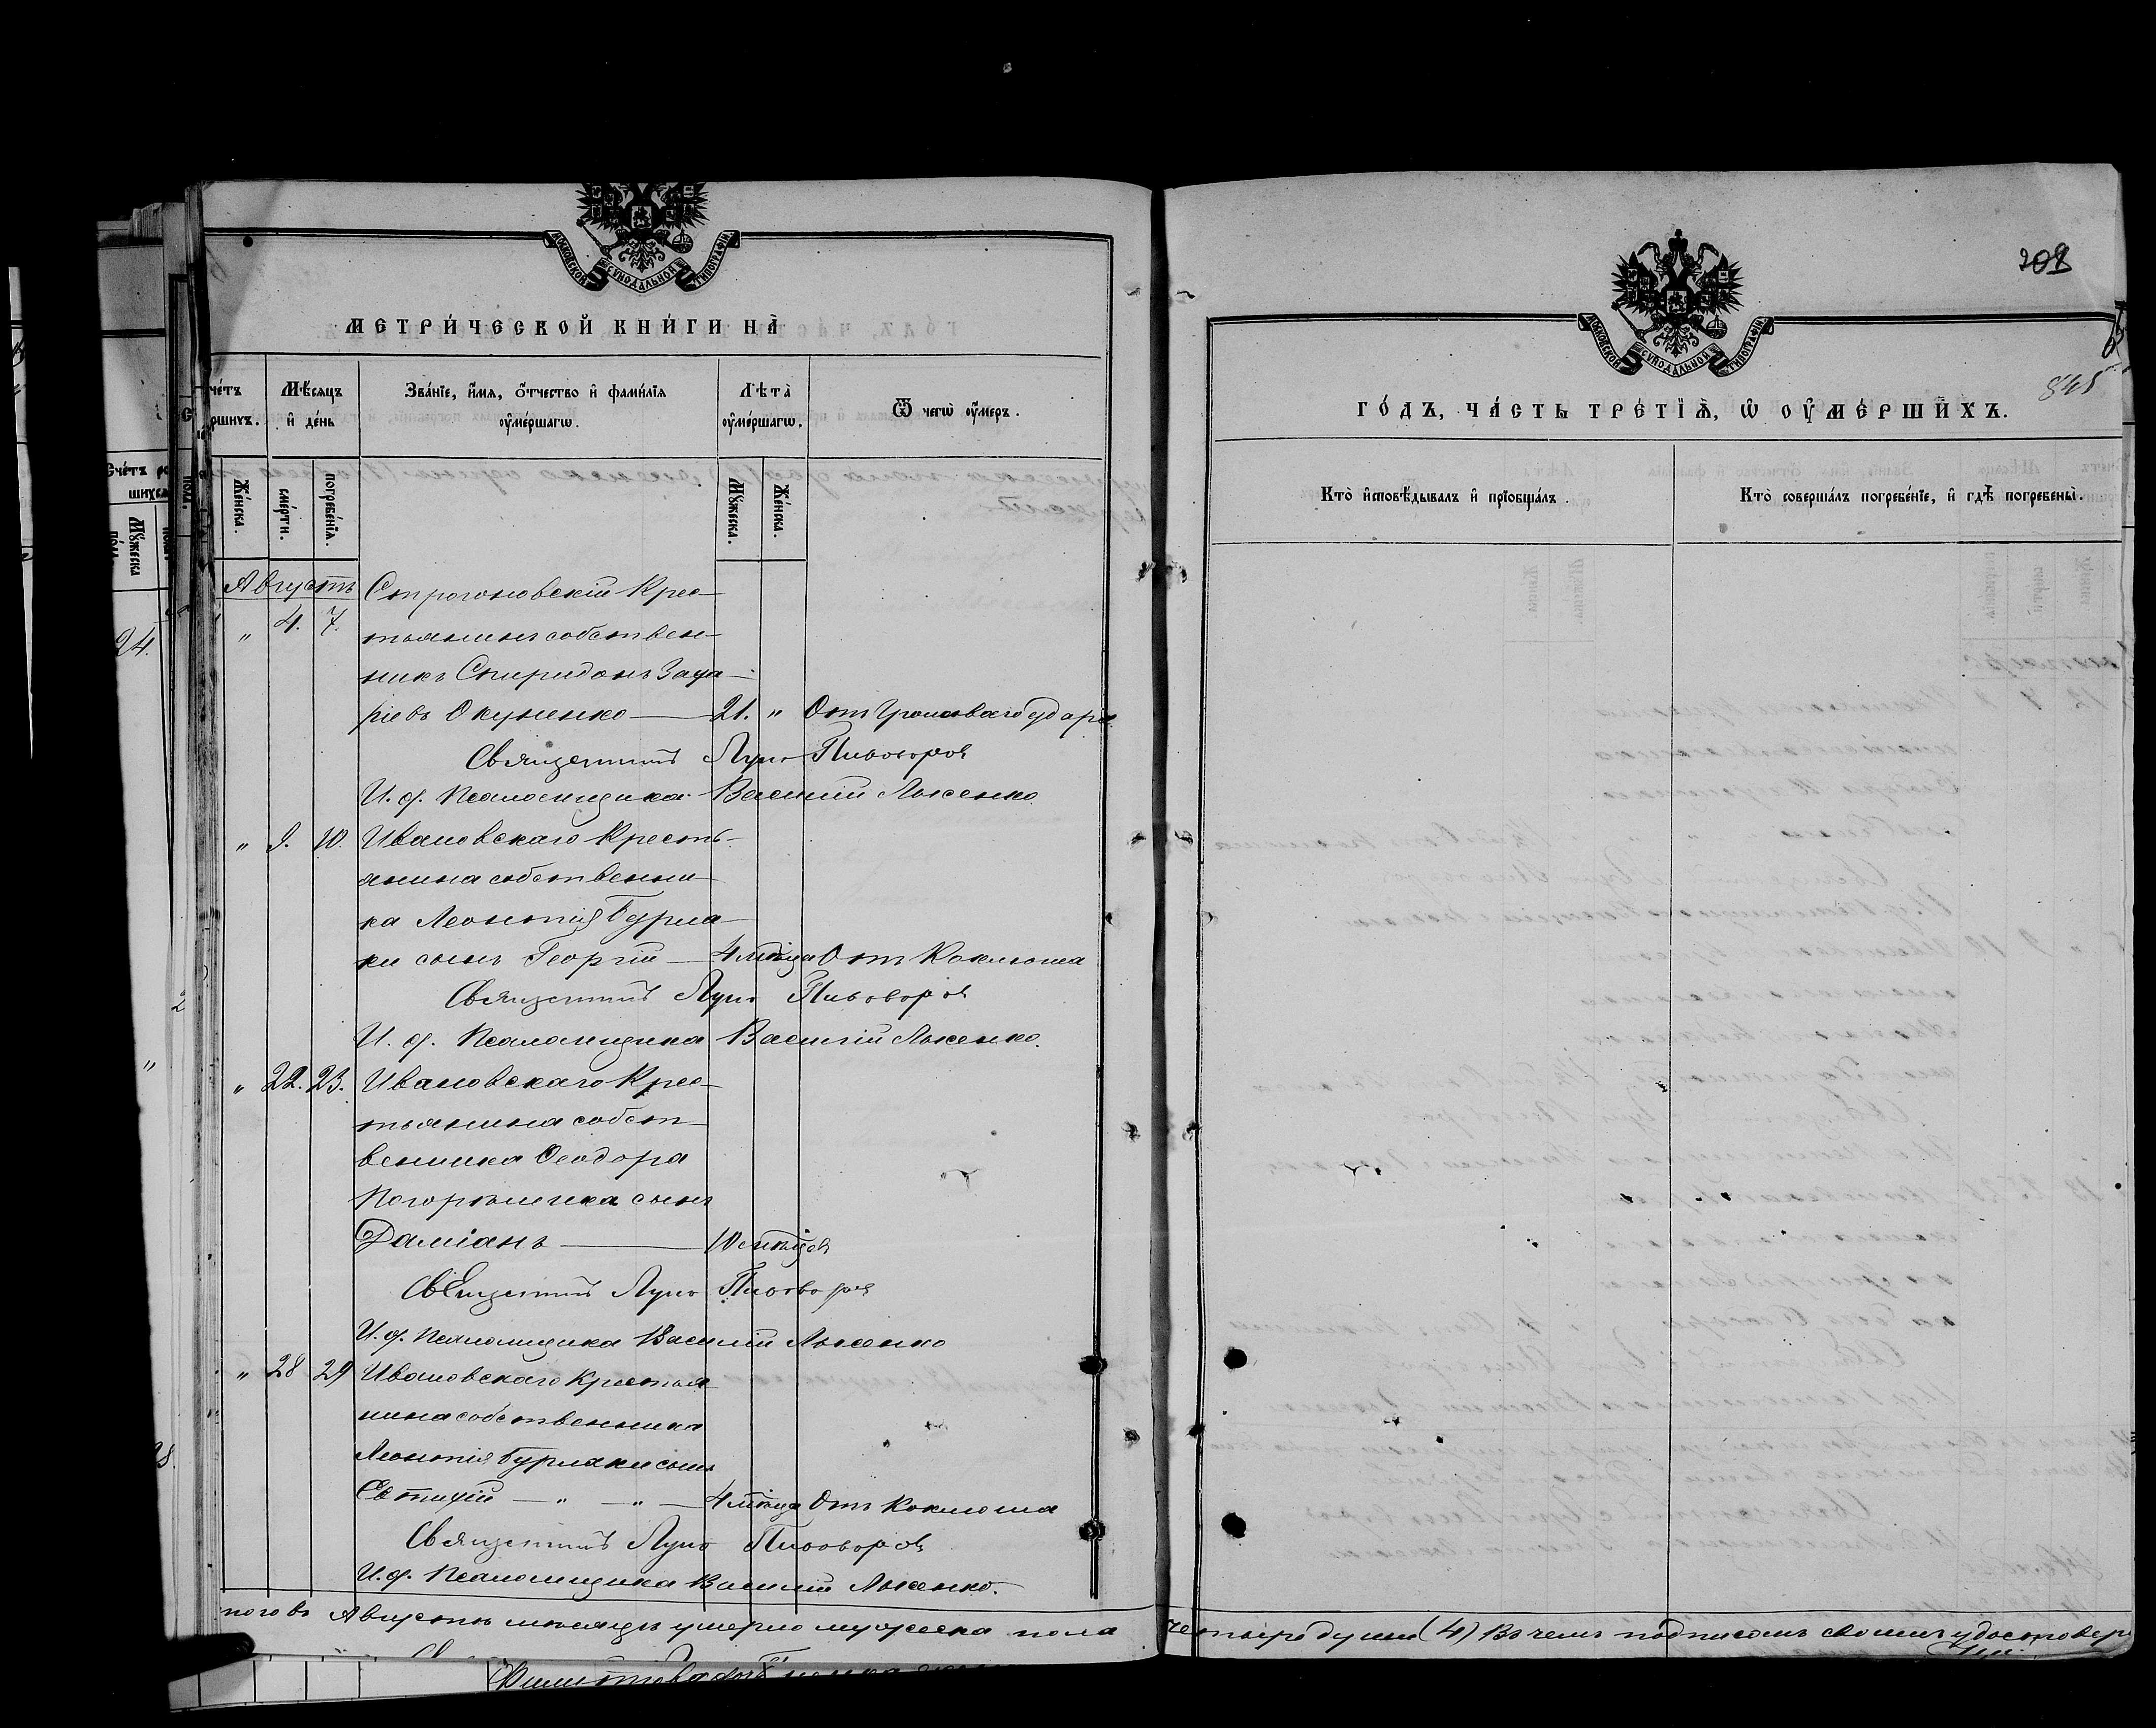 МОСКОВСКОЙ СУНОДАЛЬНОЙ ТИПОГРАФІИ
МЕТРИ́ЧЕСКОЙ КНИ́ГИ НА̀
Мѣ́сяцъ и҆ де́нь
Зва́нїе, и҆́мѧ, ѻ҆́тчество и҆ фами́лїѧ ᲂу҆ме́ршагѡ.
Лѣта̀ ᲂу҆ме́ршагѡ.
Ѿ чегѡ̀ ᲂу҆́меръ.
Же́нска.
сме́рти.
погребе́нїѧ.
Мꙋ́жеска.
Же́нска.
Августъ Строгоновскій Крес-
" 4. 7. тьянинъ собствен-
никъ Спиридонъ Заха-
ріевъ Окуненко — 21. " Отъ Громоваго удара
Священникъ Лука Пивоваров
И. д. Псаломщика Василій Лысенко.
" 9. 10. Ивановскаго Кресть-
янина собственни-
ка Леонтія Бурла-
ки сынъ Георгій — 4 мѣсяца Отъ Коклюша
Священникъ Лука Пивоваров
И. д. Псаломщика Василій Лысенко.
" 22. 23. Ивановскаго Крес-
тьянина собст-
венника Ѳеодора
сынъ
Даміанъ — 10 мѣсяцов
Священникъ Лука Пивоваров
И. д. Псаломщика Василій Лысенко
" 28 29 Ивановскаго Крестья-
нина собственника
Леонтія Бурлаки сынъ
Евтихій — " — " — 4 мѣсяца Отъ Коклюша
Священникъ Лука Пивоваров
И. д. Псаломщика Василій Лысенко.
Августѣ мѣсяцѣ умерло мужеска пола четыре души (4) Въ чемъ подписомъ своимъ удостовер
208
845
МОСКОВСКОЙ СУНОДАЛЬНОЙ ТИПОГРАФІИ
ГО́ДЪ, ЧА́СТЬ ТРЕ́ТЇѦ, Ѡ҆ ОУ҆МЕ́РШИХЪ.
Кто̀ и҆сповѣ́дывалъ и҆ прїобща́лъ.
Кто̀ соверша́лъ погребе́нїе, и҆ гдѣ̀ погребены̀.
24.